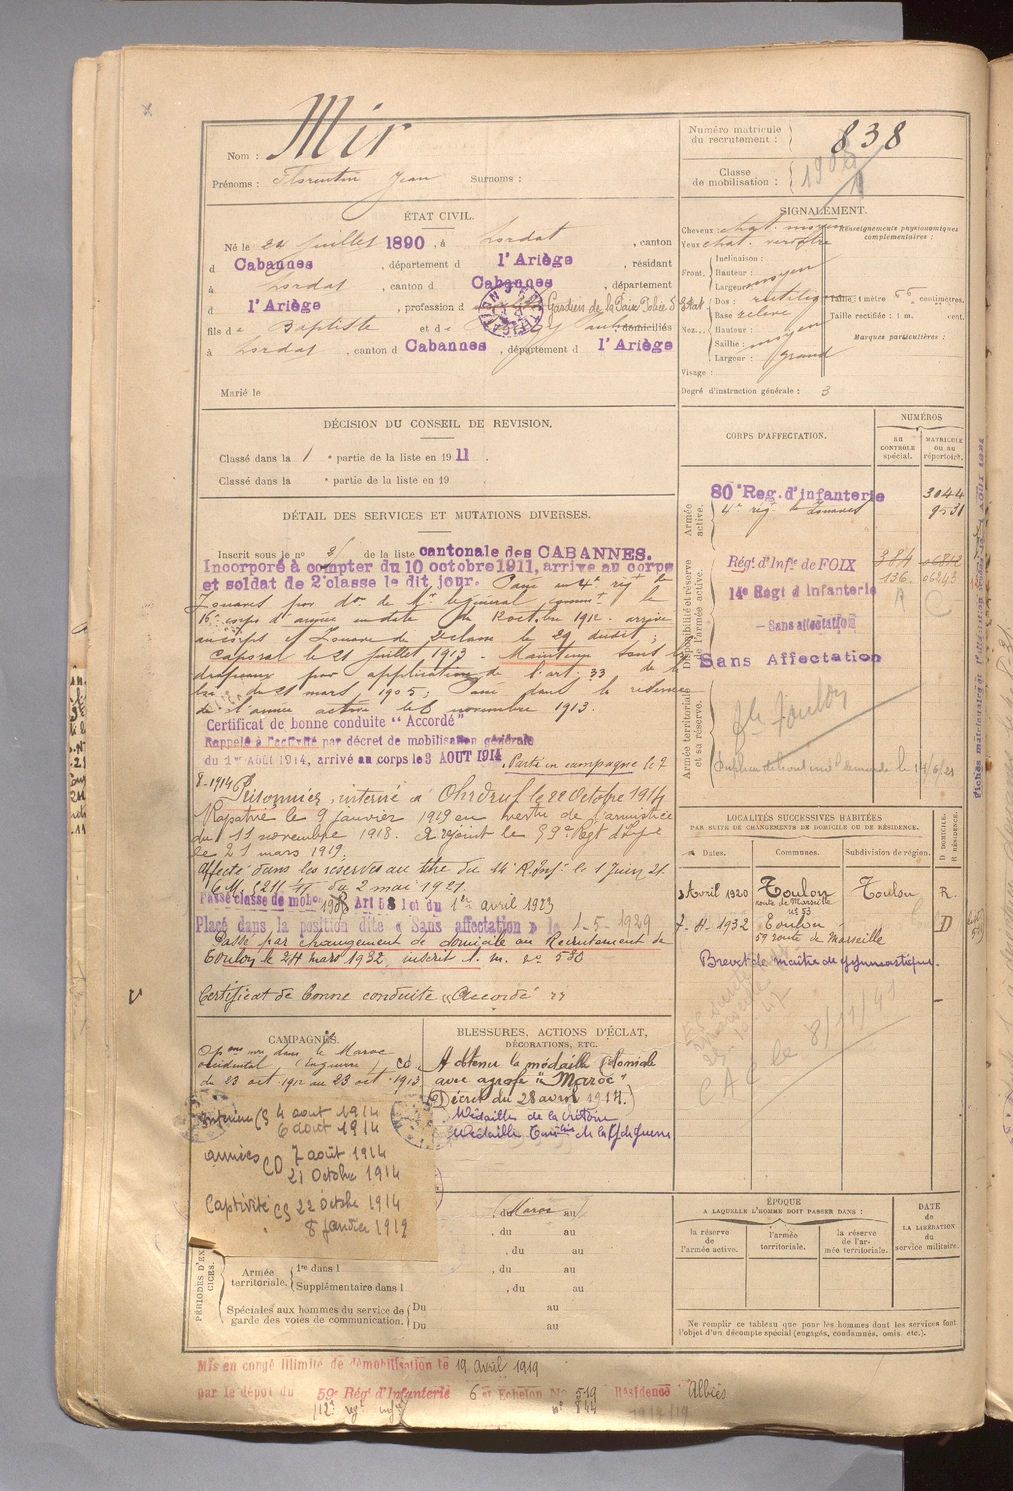 Mir
Nom :
Prénoms : Florentin Jean Surnoms :
Numéro matricule
du recrutement : 838
Classe
de mobilisation :
ÉTAT CIVIL.
Né le juillet 1890, à Lordat, canton
d Cabannes, département d l'Ariège, résidant
à Lordat, canton d Cabannes, département
d l'Ariège, profession d Gardien de la Paix
fils d Baptiste et d domiciliés
à Lordat, canton d Cabannes, département d l'Ariège
Marié le
SIGNALEMENT.
Cheveux : chat. moyen
Yeux chat. verdatre
Renseignements physionomiques
complémentaires :
Front.
Inclinaison :
Hauteur : moyen
Largeur
Nez...
Dos : rectiligne
Base relevé
Hauteur : moyen
Saillie : moyen
Largeur : grand
Taille : 1 mètre centimètres.
Taille rectifiée : 1 m. cent.
Marques particulières :
Visage :
Degré d'instruction générale : 3
DÉCISION DU CONSEIL DE REVISION.
Classé dans la 1 e partie de la liste en 1911.
Classé dans la e partie de la liste en 19
CORPS D'AFFECTATION.
NUMÉROS
AU CONTROLE spécial.
MATRICULE OU AU répertoire.
Armée active.
80e Reg. d'infanterie 3044
4e rég. de Zouaves 9531
Disponibilité et réserve de l'armée active.
Régt. d'Infie de FOIX
14e Régt d'Infanterie
Sans affectation
Sans Affectation
Armée territoriale et sa réserve.
Toulon
DÉTAIL DES SERVICES ET MUTATIONS DIVERSES.
Inscrit sous le no de la liste cantonale des CABANNES.
Incorporé à compter du 10 octobre 1911, arrivé au corps
et soldat de 2e classe le dit jour. Passé au 4e régt de
Zouaves par du général commt le
16e corps d'armée en date du 12 octobre 1912 arrivé
au corps et Zouave de 2e classe le 29 dudit ;
Caporal le 21 juillet 1913 - Maintenu sous les
drapeaux par application de l'art. 33 de la
loi du 21 mars 1905 ; Passé dans la réserve
de l'armée active le 8 novembre 1913.
Certificat de bonne conduite "Accordé"
Rappelé à l'activité par décret de mobilisation générale
du 1er Août 1914, arrivé au corps le 3 AOUT 1914. Parti en campagne le 7
8-1914 Prisonnier, interné à Ohrdruf le 22 Octobre 1914
Rapatrié le 9 janvier 1919 en vertu de l'armistice
du 11 novembre 1918. A rejoint le 59e Régt d'Infie
le 21 mars 1919.
Affecté dans les réserves au titre du 14e R. Inf. le 1 Juin 21.
du 2 mai 1921.
Passé classe de mobon Art 58 loi du 1er avril 1923
Placé dans la position dite « Sans affectation » le 1-5-1929
Passé par changement de domicile au Recrutement de
Toulon le 24 mars 1932, inscrit R. m. no 530
Certificat de bonne conduite "Accordé"
LOCALITÉS SUCCESSIVES HABITÉES
PAR SUITE DE CHANGEMENTS DE DOMICILE OU DE RÉSIDENCE.
Dates. Communes. Subdivision de région.
D DOMICILE.
R RÉSIDENCE.
3 Avril 1920 Toulon Toulon R.
route de Marseille
no 53
7-4-1932 Toulon D
59 route de Marseille
Brevet de maitre de gymnastique.
C A C le 8/11/41
CAMPAGNES.
Opons mres dans le Maroc
occidental (en guerre) CD
du 23 oct. 1912 au 23 oct. 1913
Intérieur CS 4 aout 1914
6 aout 1914
armées CD 7 août 1914
21 Octobre 1914
Captivité CS 22 octobre 1914
8 janvier 1919
BLESSURES, ACTIONS D'ÉCLAT,
DÉCORATIONS, ETC.
A obtenu la médaille Coloniale
avec agrafe "Maroc"
(Décret du 28 avril 1914.)
Médaille de la Victoire
du Maroc au
, du au
, du au
PÉRIODES D'EXERCICES.
Armée
territoriale.
1re dans l , du au
Supplémentaire dans l , du au
Spéciales aux hommes du service de
garde des voies de communication.
Du au
Du au
ÉPOQUE
A LAQUELLE L'HOMME DOIT PASSER DANS :
la réserve
de
l'armée active.
l'armée
territoriale.
la réserve
de l'ar-
mée territoriale.
DATE
de
LA LIBÉRATION
du
service militaire.
Ne remplir ce tableau que pour les hommes dont les services font
l'objet d'un décompte spécial (engagés, condamnés, omis, etc.).
Mis en congé illimité de démobilisation le 19 avril 1919
par le dépôt du 59e Régt d'Infanterie 6e Echelon No 519 Résidence Albiès
no 144